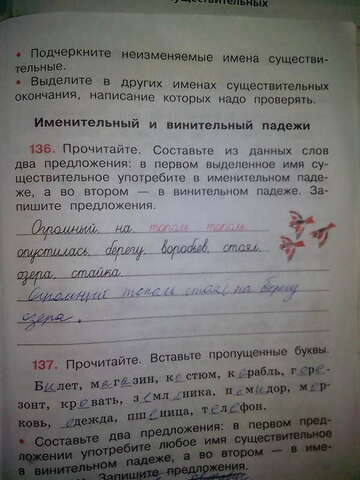 существительных
• Подчеркните неизменяемые имена существи-
тельные.
• Выделите в других именах существительных
окончания, написание которых надо проверять.
Именительный и винительный падежи
136. Прочитайте. Составьте из данных слов
два предложения: в первом выделенное имя су-
ществительное употребите в именительном паде-
же, а во втором — в винительном падеже. За-
пишите предложения.
Огромный, на тополь, тополь,
опустилась, берегу, воробьев, стоял,
озера, стайка.
Огромный тополь стоял на берегу
озера.
137. Прочитайте. Вставьте пропущенные буквы.
Билет, магазин, костюм, корабль, гори-
зонт, кровать, земляника, помидор, мор-
ковь, одежда, пшеница, телефон.
• Составьте два предложения: в первом пред-
ложении употребите любое имя существительное
в винительном падеже, а во втором — в име-
Запишите предложения.